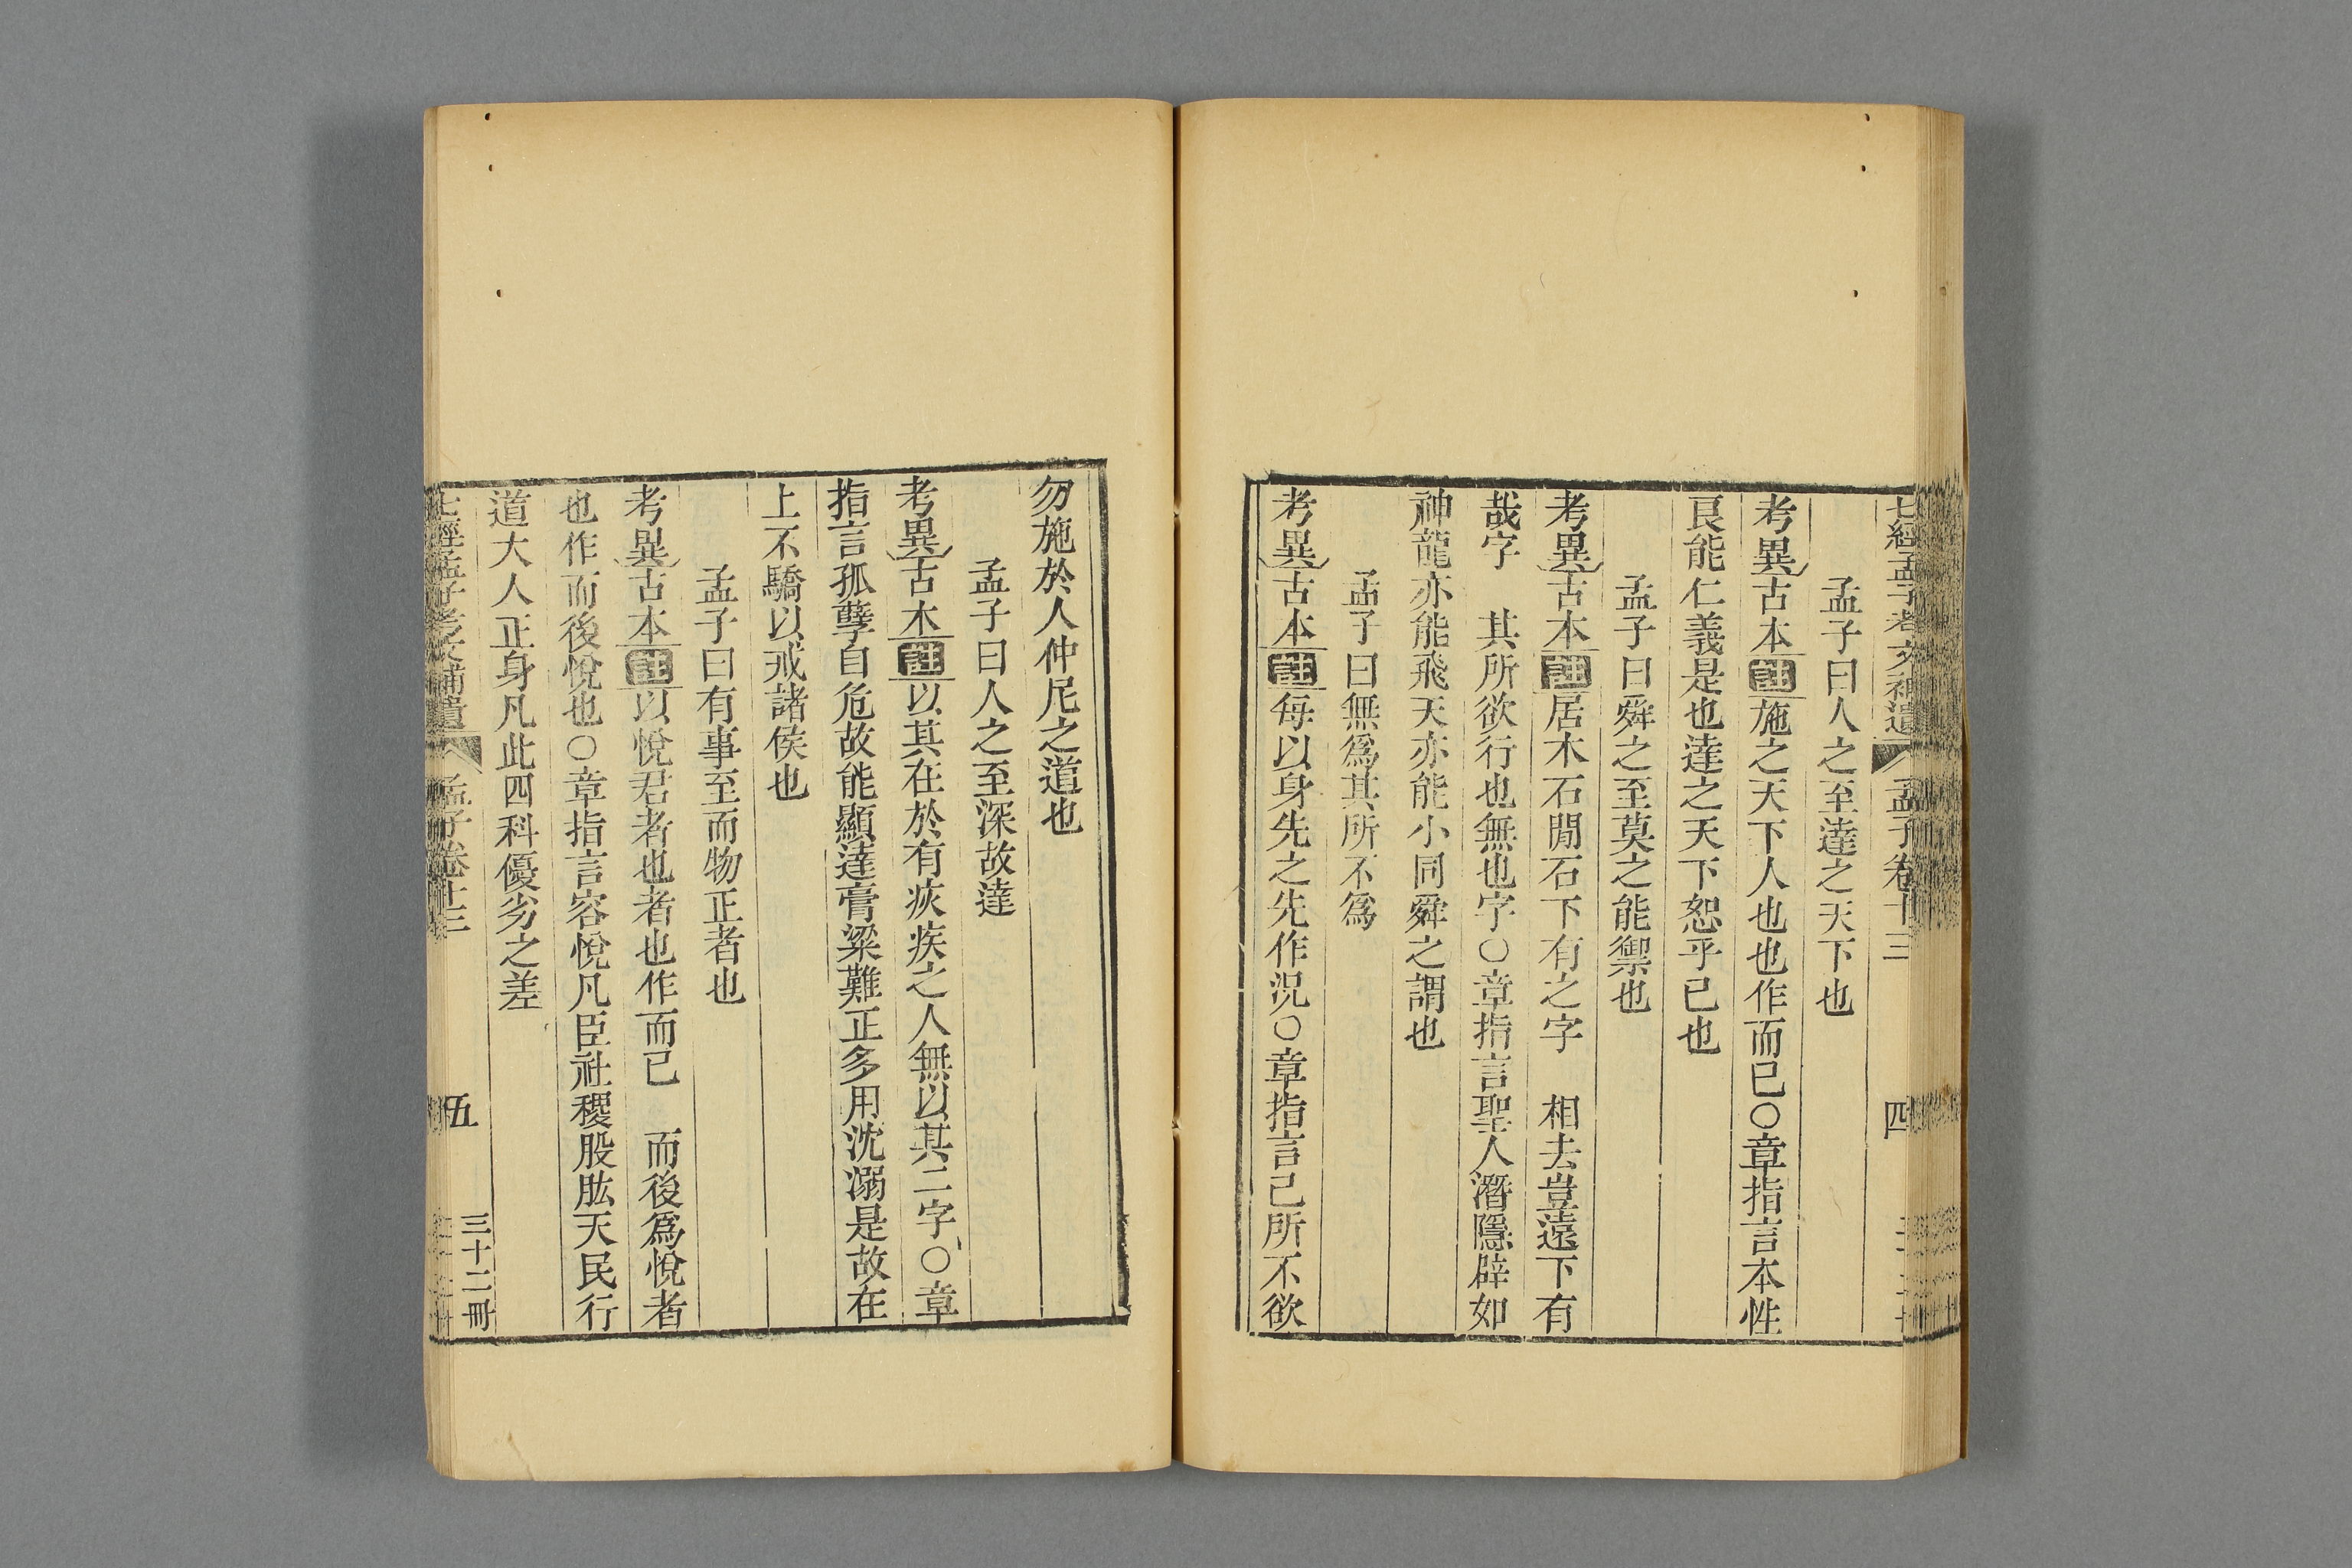 七經孟子考文補遺 孟子卷十三 四
孟子曰人之至達之天下也
考異古本註施之天下人也也作而已○章指言本性
良能仁義是也達之天下恕乎已也
孟子曰舜之至莫之能禦也
考異古本註居木石閒石下有之字 相去豈遠下有
哉字 其所欲行也無也字○章指言聖人潛隱辟如
神龍亦能飛天亦能小同舜之謂也
孟子曰無爲其所不爲
考異古本註每以身先之先作況○章指言己所不欲
勿施於人仲尼之道也
孟子曰人之至深故達
考異古木註以其在於有疢疾之人無以其二字○章
指言孤孽自危故能顯達膏粱難正多用沈溺是故在
上不驕以戒諸侯也
孟子曰有事至而物正者也
考異古本註以悅君者也者也作而已 而後爲悅者
也作而後悅也○章指言容悅凡臣社稷股肱天民行
道大人正身凡此四科優劣之差
七經孟子考文補遺 孟子卷十三 五 三十二冊